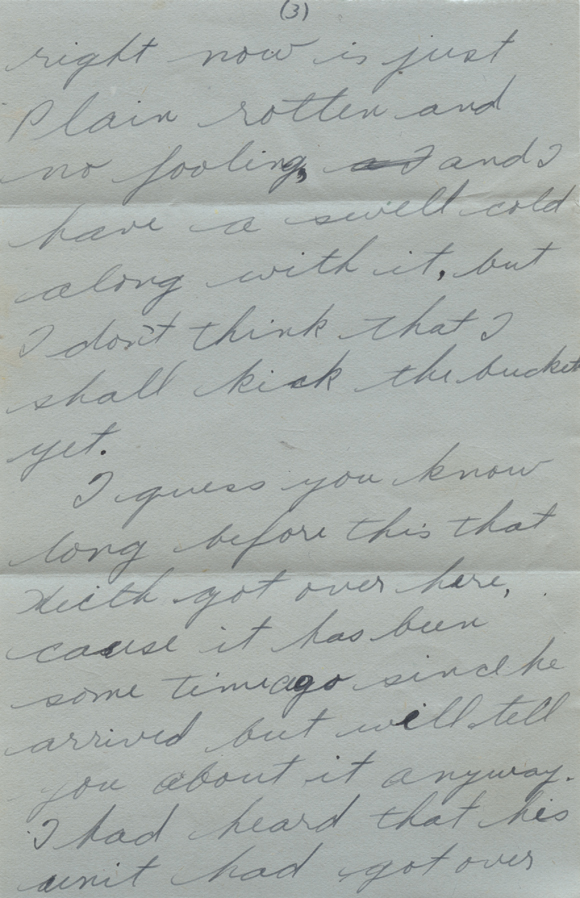 (3)
right now is just
Plain rotten and
no fooling, and I
have a swell cold
along with it, but
I don't think that I
shall kick the bucket
yet.
I guess you know
long before this that
Keith got over here,
cause it has been
some time ago since he
arrived but will tell
you about it anyway.
I had heard that his
unit had got over